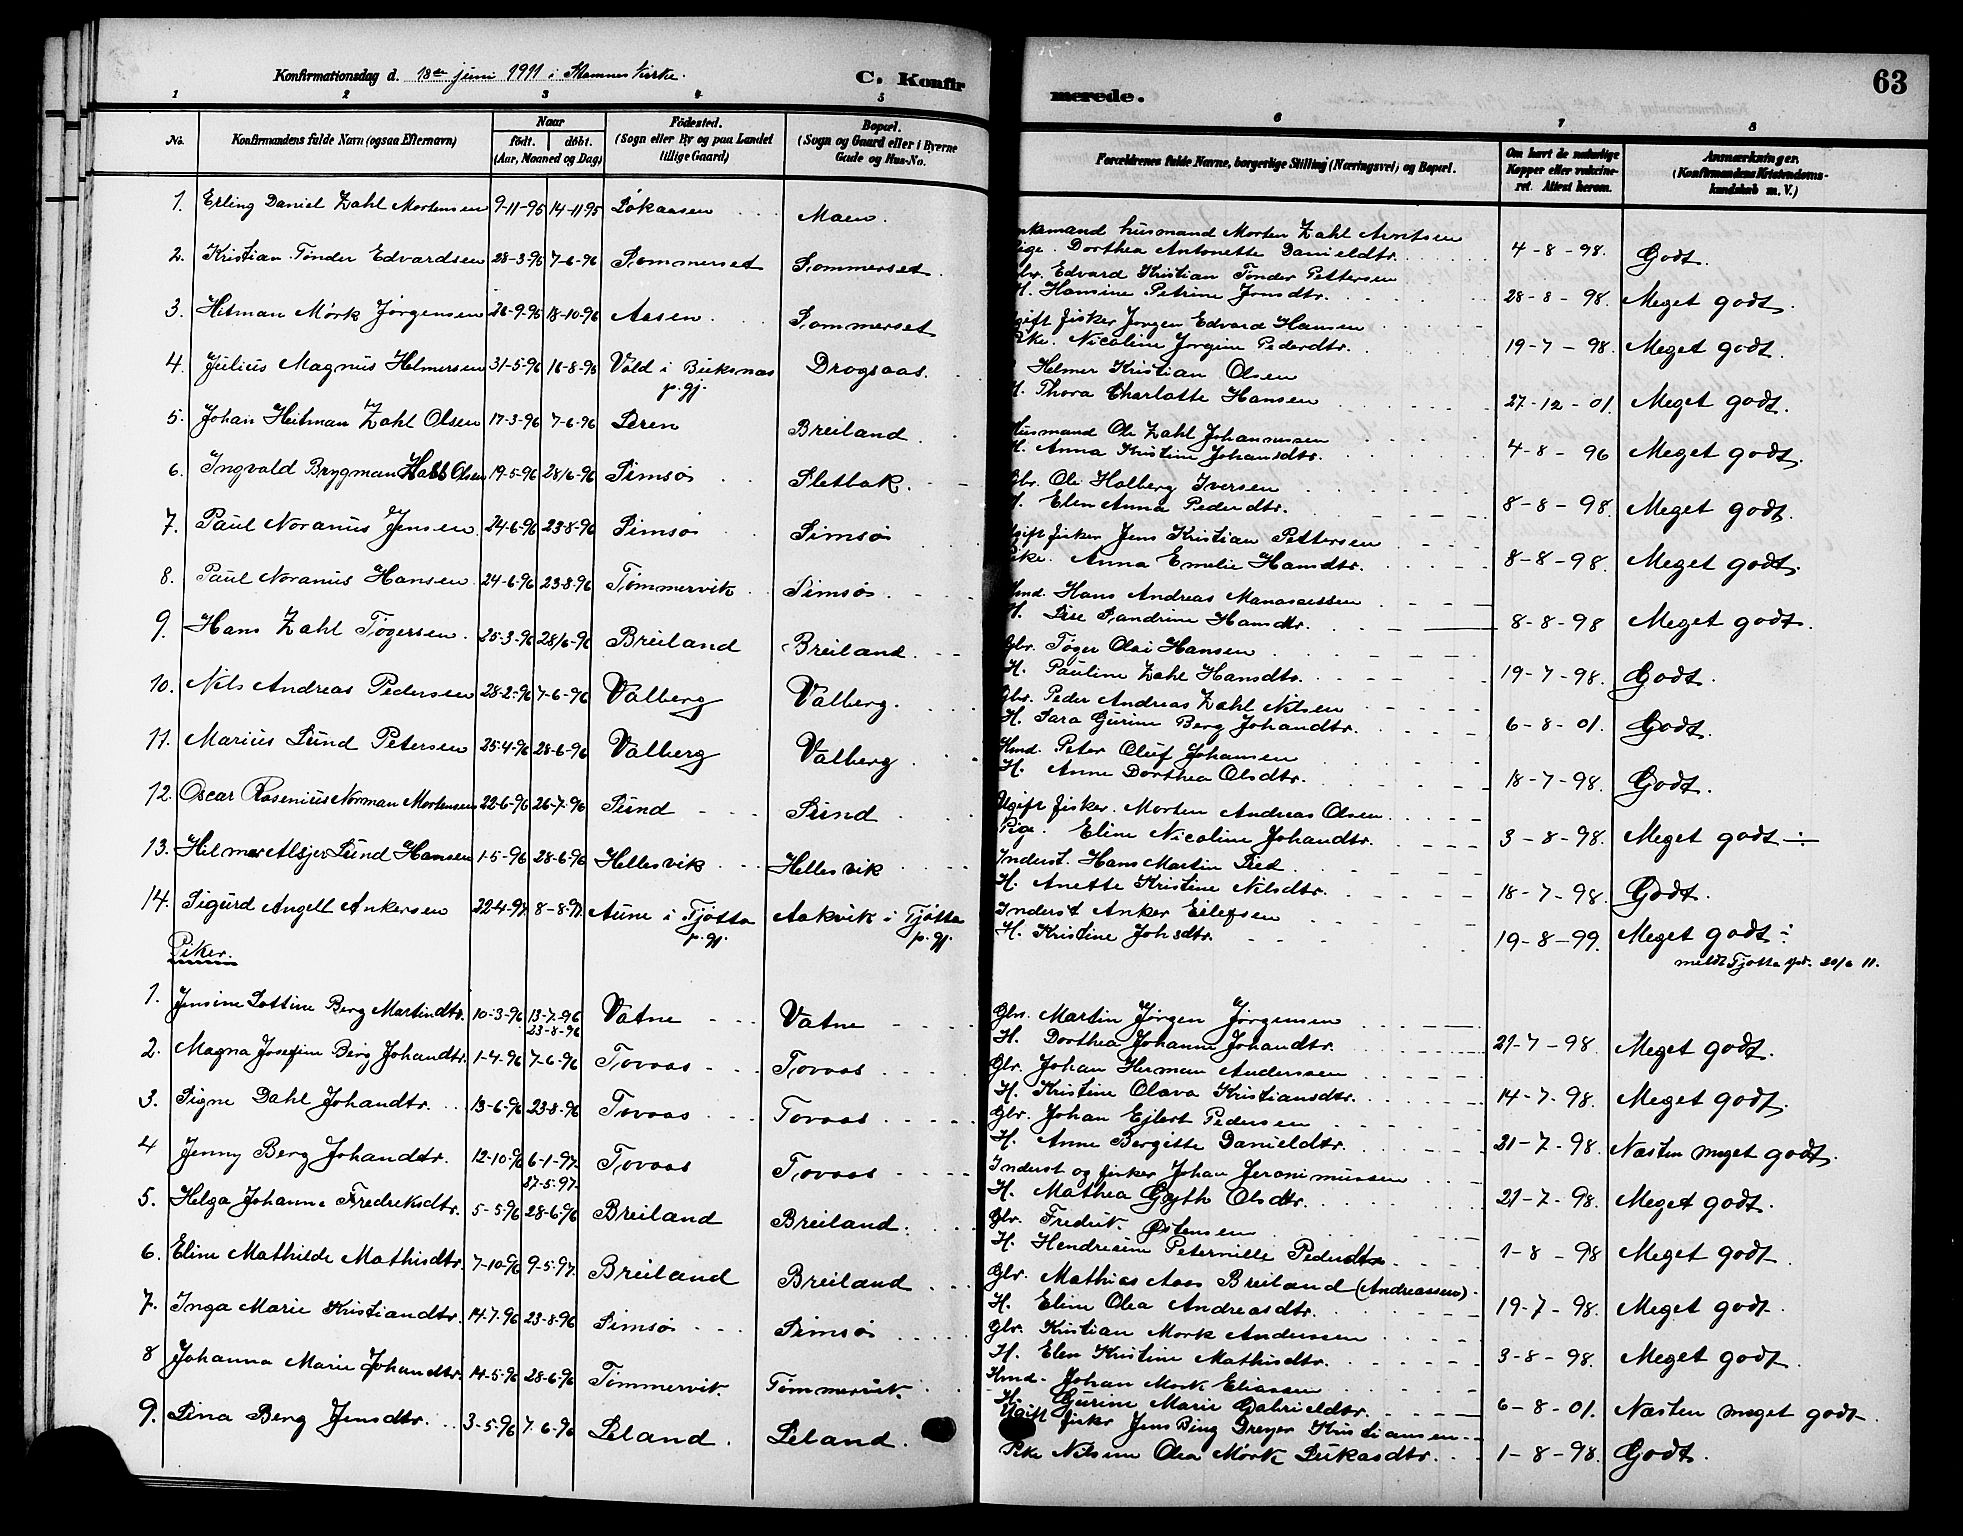 Konfirmationsdag d. 18de juni 1911 i Stamnes Kirke.
C. Konfirmerede.
63
1 2 3 4 5 6 7 8
No.
Konfirmandens fulde Navn (ogsaa Efternavn)
Naar
født. døbt.
(Aar, Maaned og Dag)
Fødested.
(Sogn eller By og paa Landet
tillige Gaard)
Bopæl.
(Sogn og Gaard eller i Byerne
Gade og Hus-No.
Forældrenes fulde Navne, borgerlige Stilling (Næringsvei) og Bopæl.
Om havt de naturlige
Kopper eller vaksine-
ret. Attest herom.
Anmærkninger.
(Konfirmandens Kristendoms-
kundskab m. V.)
1. Erling Daniel Zahl Mortensen 9-11-95 14-11-95 Løkaasen Moen.
Enkemand husmand Morten Zahl Arntsen
Pige. Dorthea Antonette Danieldtr. 4-8-98. Godt.
2. Kristian Tønder Edvardsen 28-3-96 7-6-96 Sommerset Sommerset.
Gbr. Edvard Kristian Tønder Pettersen
H. Hansine Petrine Jonsdtr. 28-8-98. Meget godt.
3. Hitman Mørk Jørgensen 26-9-95 18-10-96 Aasen. Sommerset
Ugift fisker Jørgen Edvard Hansen
Pike. Nicoline Jørgine Pederdtr. 19-7-98. Meget godt.
4. Julius Magnus Helmersen 31-5-96 16-8-96 Vold i Buksnæs p.gj. Drogsaas.
Helmer Kristian Olsen
H. Thora Charlotte Hansen 27-12-01. Meget godt.
5. Johan Heitman Zahl Olsen 17-3-96 7-6-96 Leren Breiland.
Husmand Ole Zahl Johannessen
H. Anna Kristine Johansdtr. 4-8-96 Meget godt.
6. Ingvald Brygman Olsen 19-5-96 28/6-96 Simsø Sletbak.
Gbr. Ole Holberg Iversen
H. Elen Anna Pederdtr. 8-8-98. Meget godt.
7. Paul Noranus Jensen 24-6-96 23-8-96 Simsø Simsø
Ugift fisker Jens Kristian Pettersen
Pike. Anna Emelie Hansdtr. 8-8-98. Meget godt.
8. Paul Noranus Hansen 24-6-96 23-8-96 Tømmervik Simsø
Hmd. Hans Andreas Manassessen
H. Lise Sandrine Hansdtr. 8-8-98 Meget godt.
9. Hans Zahl Tøgersen. 25-3-96 28/6-96 Breiland Breiland.
Gbr. Tøger Olai Hansen
H. Pauline Zahl Hansdtr. 19-7-98. Godt.
10. Nils Andreas Pedersen 28-2-96 7-6-96 Valberg Valberg.
Gbr. Peder Andreas Zahl Nilsen
H. Sara Gurine Berg Johandtr. 6-8-01. Godt.
11. Marius Lund Petersen 25-4-96 28-6-96 Valberg Valberg.
Hmd. Peter Oluf Johansen
H. Anne Dorthea Olsdtr. 18-7-98. Godt.
12. Oscar Rosenius Norman Mortensen 22-6-96 26-7-96 Sund Sund
Ugift fisker. Morten Andreas Olsen
Pige. Eline Nicoline Johandtr. 3-8-98. Meget godt ÷
13. Hilmar Lund Hansen 1-5-96 28-6-96 Hellesvik Hellesvik
Inderst. Hans Martin
H. Anette Kristine Nilsdtr. 18-7-98. Godt.
14. Sigurd Angell Ankersen 22-4-97 8-8-97 Aune i Tjøtta p.gj. Aakvik i Tjøtta p.gj.
Inderst Anker Eilefsen
H. Kristine Johsdtr. 19-8-99. Meget godt ÷
meldt Tjøtta 20/6 11.
Piker.
1. Jensine Lottine Berg Martindtr. 10-3-96 13-7-96 23-8-96 Vatne Vatne
Gbr. Martin Jørgen Jørgensen
H. Dorthea Johanne Johandtr. 21-7-98. Meget godt.
2. Magna Josefine Berg Johandtr. 1-4-96 7-6-96 Tovaas Tovaas
Gbr. Johan Herman Anderssen
H. Kristine Olava Kristiansdtr. 14-7-98. Meget godt.
3. Signe Dahl Johandtr. 13-6-96 23-8-96 Tovaas Tovaas
Gbr. Johan Ejlert Pedersen
H. Anne Bergitte Danieldtr. 21-7-98. Næsten meget godt.
4 Jenny Berg Johandtr. 12-10-96 6-1-97. 27-5-97. Tovaas Tovaas
Inderst og fisker Johan Jeronimussen
H. Mathea Gyth Olsdtr. 21-7-98. Meget godt.
5. Helga Johanne Fredriksdtr. 5-5-96 28-6-96 Breiland Breiland.
Gbr. Fredrik Østensen
H. Hendrikine Peternille Pederdtr 1-8-98 Meget godt.
6. Eline Mathilde Mathisdtr. 7-10-96 9-5-97. Breiland Breiland
Gbr. Mathias Aas Breiland (Andreassen)
H. Eline Olea Andreasdtr. 19-7-98. Meget godt.
7. Inga Marie Kristiandtr. 14-7-96 23-8-96 Simsø Simsø
Gbr. Kristian Mørk Anderssen
H. Elen Kristine Mathisdtr. 3-8-98. Meget godt.
8 Johanna Marie Johandtr. 14-5-96 28-6-96 Tømmervik Tømmervik.
Hmd. Johan Mork Eliassen
H. Gurine Marie Gabrieldtr. 6-8-01. Næsten meget godt.
9. Lina Berg Jensdtr. 3-5-96 7-6-96 Leland. Leland.
Ugift fisker Jens Bing Dreyer Kristiansen
Pike Nilsine Olea Mørk Lukasdtr. 1-8-98. Godt.